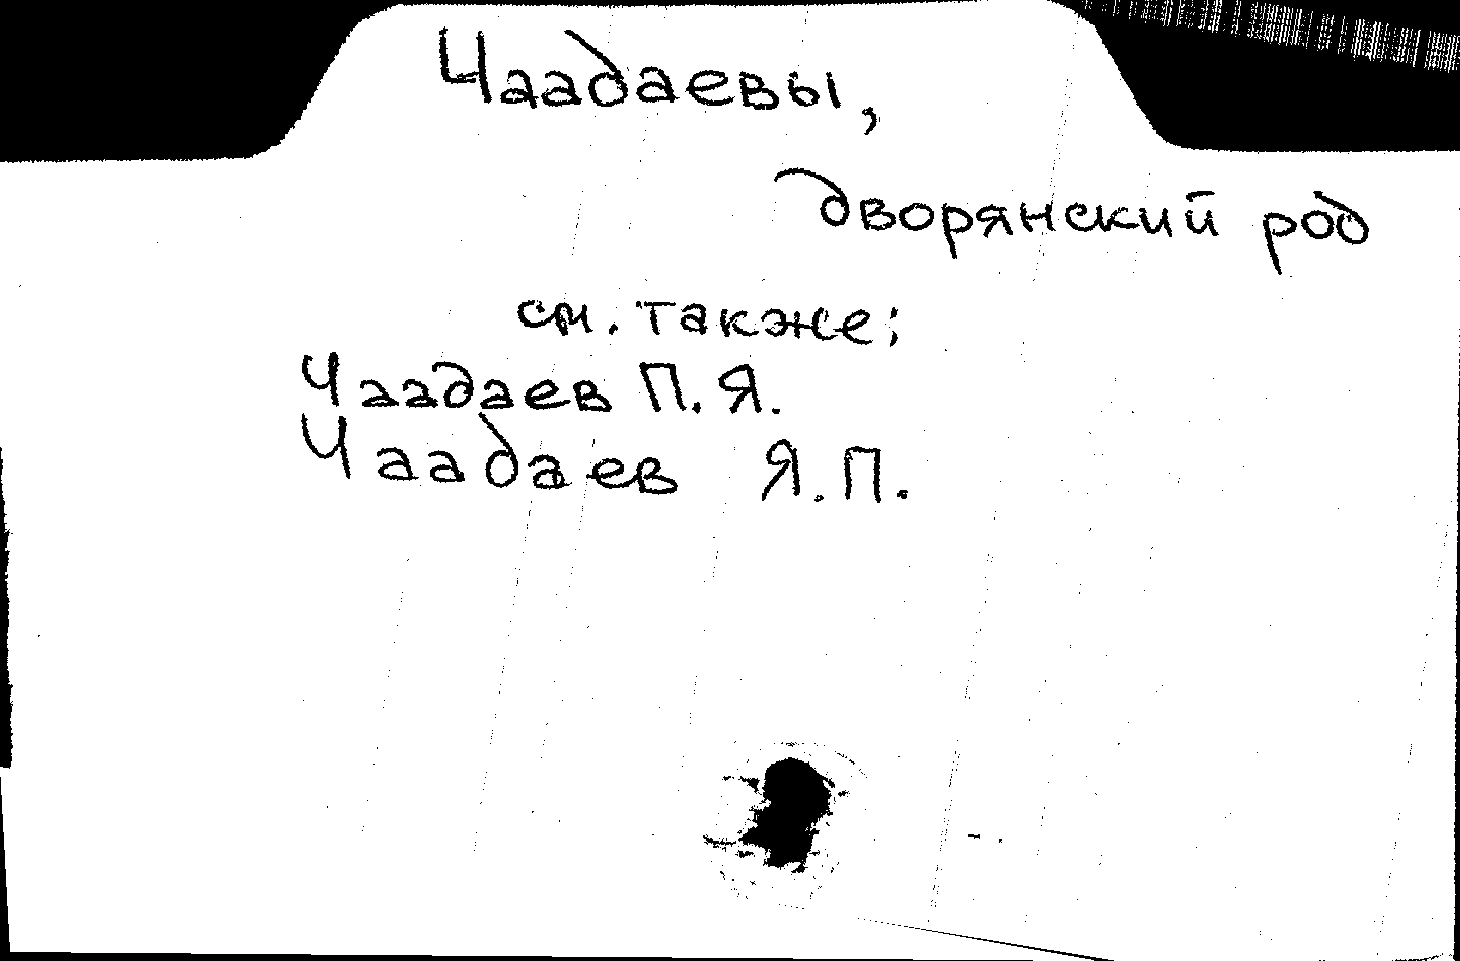 Чаадаевы,
дворянский род
см. также:
Чаадаев П. Я.
Чаадаев Я. П.